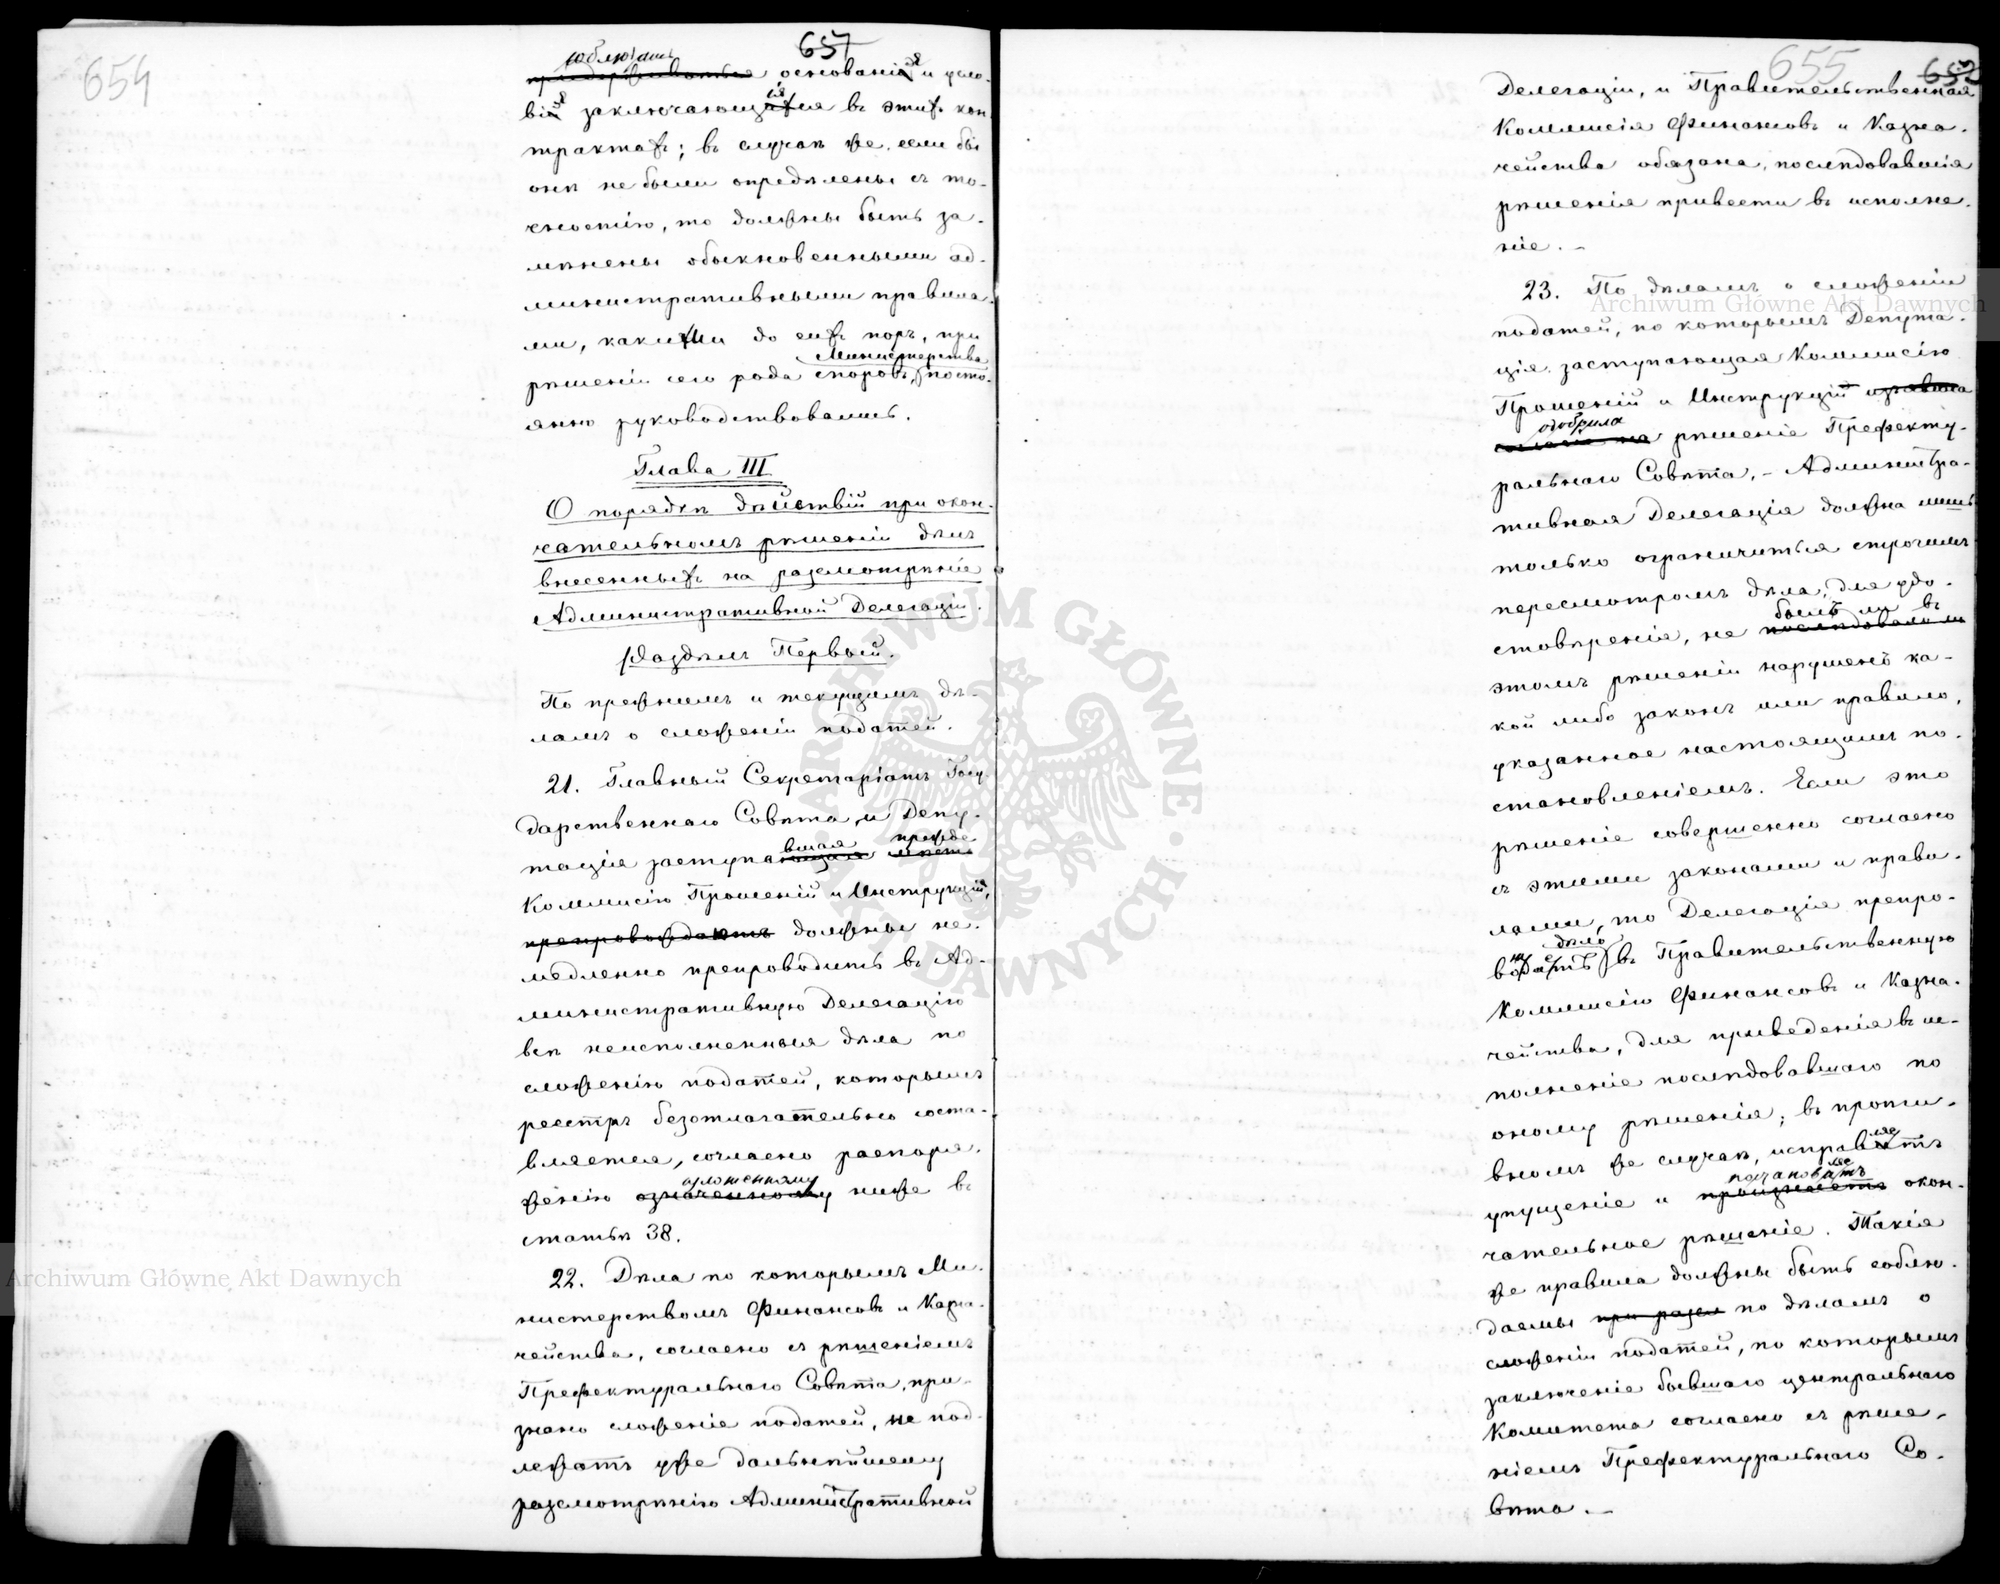 654
657
соблюдать
придерживаться основанія и усло-
вія заключающіяся въ этихъ кон-
трактахъ; въ случаѣ же, если бы
онѣ не были опредѣлены съ то-
чностію, то должны быть за-
мѣнены обыкновенными ад-
министративными правила-
ми, какими до сихъ поръ, при
Министерства
рѣшеніи сего рода споровъ, посто-
янно руководствовались.
Глава III
О порядкѣ дѣйствій при окон-
чательномъ рѣшеніи дѣлъ
внесенныхъ на разсмотрѣніе
Административной Делегаціи.
Раздѣлъ Первый.
По прежнимъ и текущимъ дѣ-
ламъ о сложеніи податей.
21. Главный Секретаріатъ Госу-
дарственнаго Совѣта, и Депу-
вшая прежде
тація заступающая мѣсто
Коммисію Прошеній и Инструкцій,
препровождаютъ должны не-
медленно препроводить въ Ад-
министративную Делегацію
всѣ неисполненныя дѣла по
сложенію податей, которымъ
реестръ безотлагательно соста-
вляется, согласно распоря-
изложенному
женію означенному ниже въ
статьѣ 38.
22. Дѣла по которымъ Ми-
нистерствомъ Финансовъ и Казна-
чейства, согласно съ рѣшеніемъ
Префектуральнаго Совѣта, при-
знано сложеніе податей, не под-
лежатъ уже дальнѣйшему
разсмотрѣнію Административной
655
652
Делегаціи, и Правительственная
Коммисія Финансовъ и Казна-
чейства обязана, послѣдовавшія
рѣшенія привести въ исполне-
ніе. —
23. По дѣламъ о сложеніи
податей, по которымъ Депута-
ція заступающая Коммисію
Прошеній и Инструкцій изъявила
одобрила
согласіе на рѣшеніе Префекту-
ральнаго Совѣта, — Администра-
тивная Делегація должна лишь
только ограничиться строгимъ
пересмотромъ дѣла, для удо-
былъ ли въ
стовѣренія, не послѣдовало ли
этомъ рѣшеніи нарушенъ ка-
кой либо законъ или правило,
указанное настоящимъ по-
становленіемъ. Если это
рѣшеніе совершенно согласно
съ этими законами и прави-
лами, то Делегація препро-
дѣло
водитъ въ Правительственную
Коммисію Финансовъ и Казна-
чейства, для приведенія въ ис-
полненіе послѣдовавшаго по
оному рѣшенія; въ против-
номъ же случаѣ, исправляетъ
постановляетъ
упущеніе и произнесетъ окон-
чательное рѣшеніе. Такія
же правила должны быть соблю-
даемы при разсм по дѣламъ о
сложеніи податей, по которымъ
заключеніе бывшаго центральнаго
Комитета согласно съ рѣше-
ніемъ Префектуральнаго Со-
вѣта. —
Archiwum Główne Akt Dawnych
Archiwum Główne Akt Dawnych
ARCHIWUM GŁÓWNE · AKT DAWNYCH ·